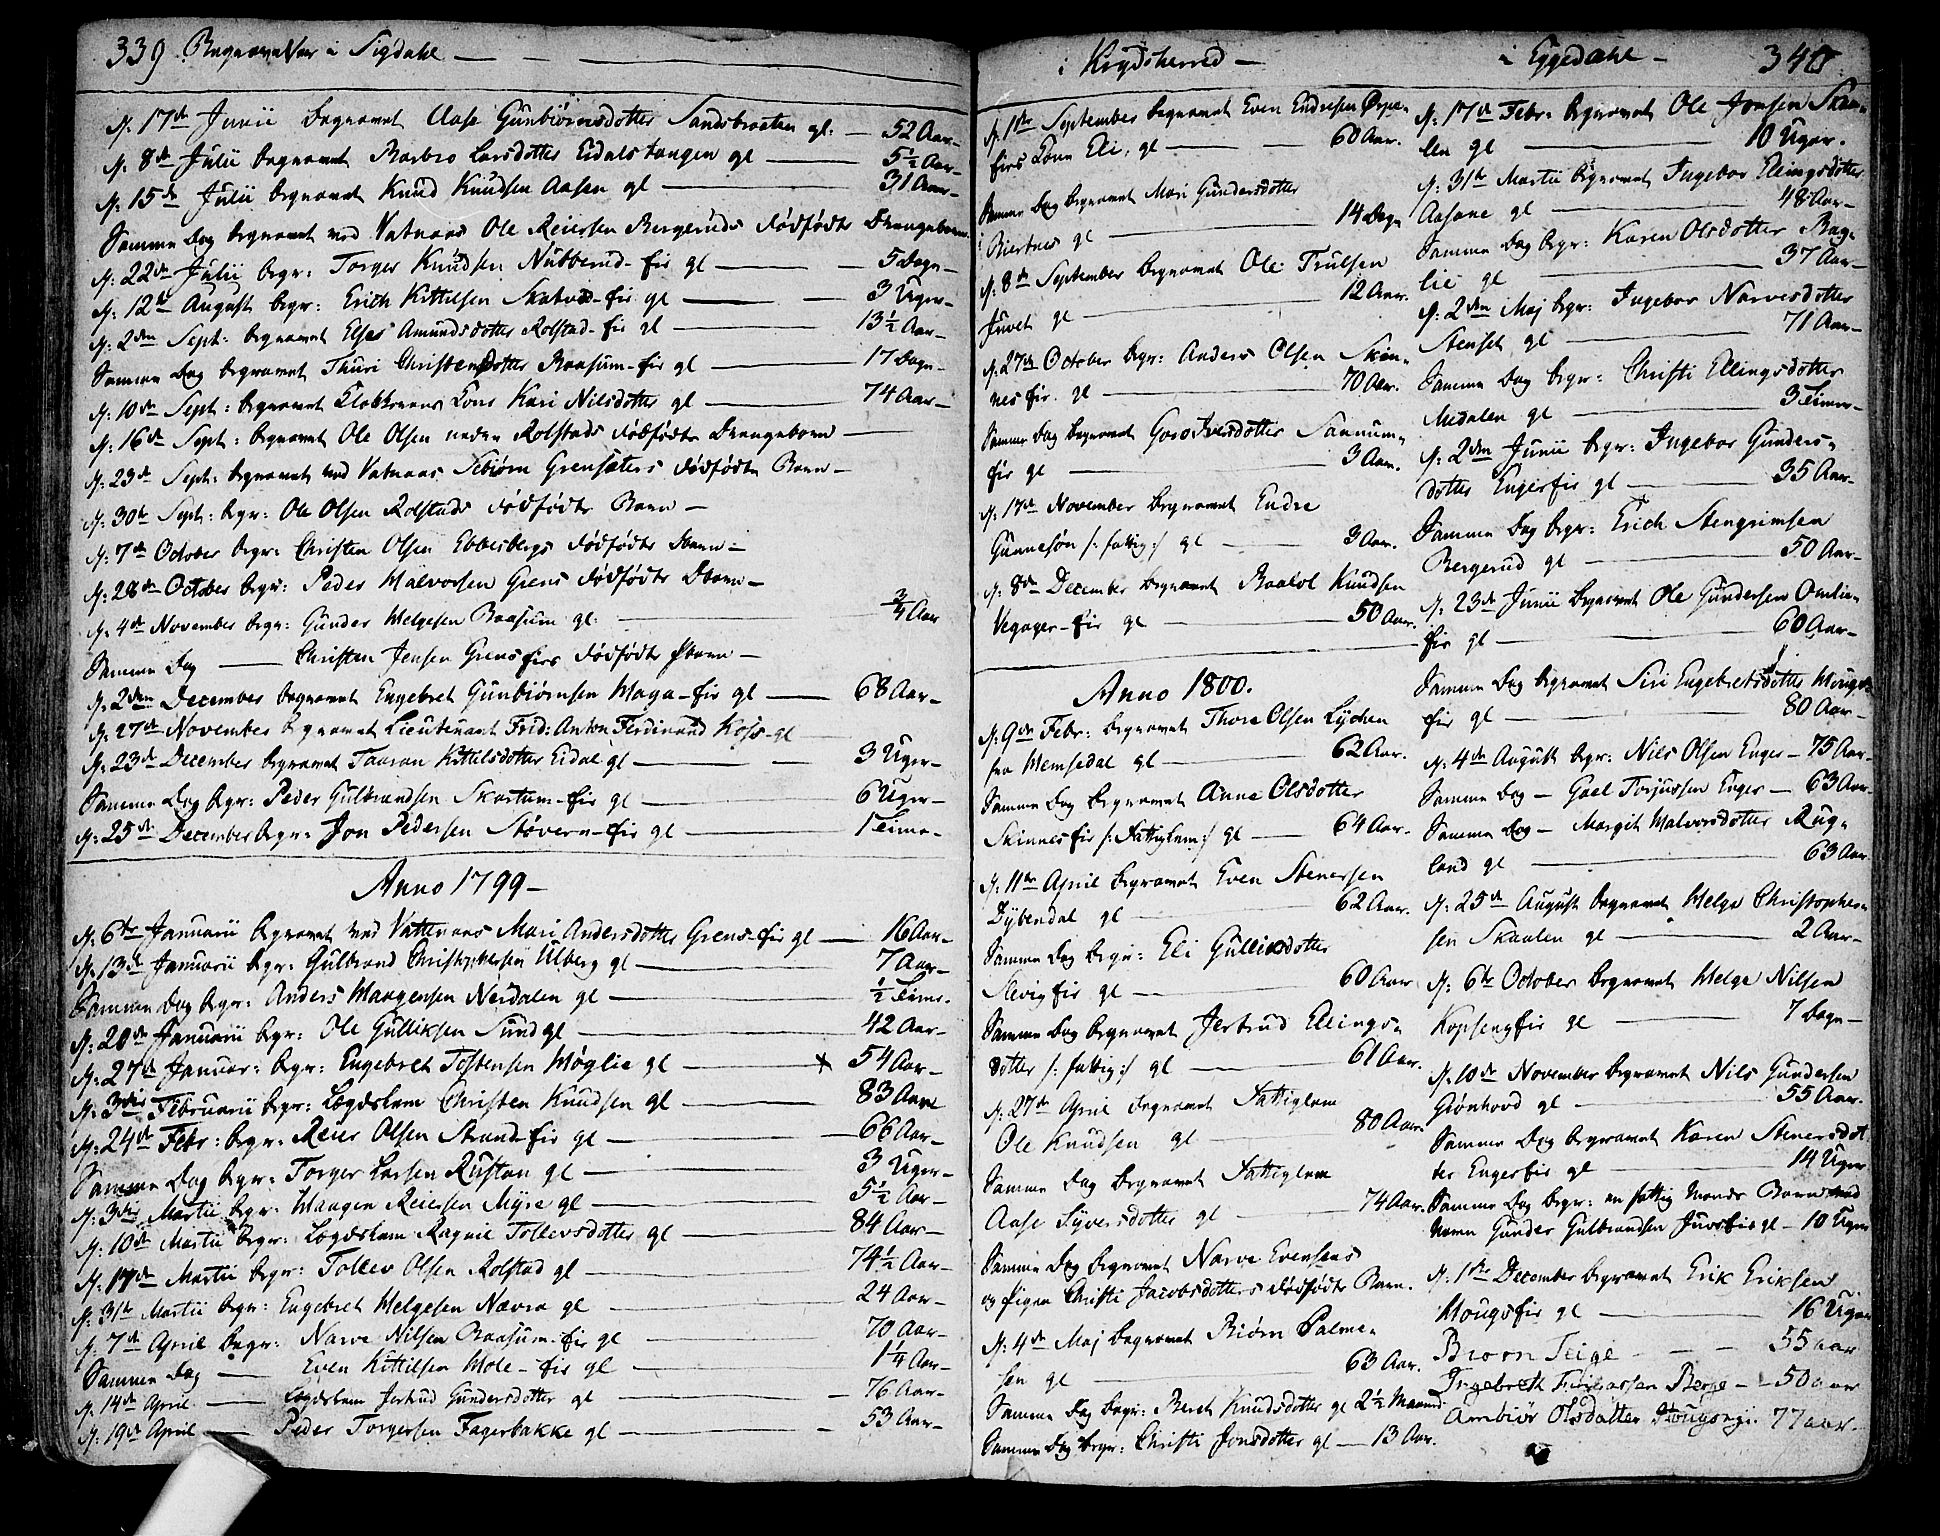 339 Begravelser i Sigdahl —
d: 17de Junii Begravet Aase Gunbiørnsdotter Sandsbraaten gl: — 52 Aar—
d: 8de Julii begravet Barbro Larsdotter Eidalstangen gl — 5½ Aar—
d: 15de Julii begravet Knud Knudsen Aasen gl — 31 Aar—
Samme Dag begravet ved Vatnaas Ole Reiersen Bergeruds dødfødte Drengebarn
d: 22de Julii begr: Torger Knudsen Nubberud-eie gl — 5 Dage—
d: 12te August begr: Erich Kittilsen Skatvet-eie gl — 3 Uger—
d: 2den Sept: begravet Elses Amundsdotter Rolstad-eie gl — 13½ Aar—
Samme Dag begravet Thuri Christensdotter Braasum-eie gl — 17 Dage—
d: 10de Sept: begravet Klokkerens Kone Kari Nilsdotter gl — 74 Aar—
d: 16de Sept: begravet Ole Olsen nedre Rolstads dødfødte Drengebarn —
d: 23de Sept: begravet ved Vatnaas Sebiørn Grensæters dødfødte Barn —
d: 30te Sept: begr: Ole Olsen Rolstads dødfødte Barn —
d: 7de October begr: Christen Olsen Ebbesbergs dødfødte Barn —
d: 28de October begr: Peder Halvorsen Grens dødfødte Barn —
d: 4de November begr: Gunder Helgesen Braasum gl: — ¾ Aar
Samme Dag — Christen Jensen Grenseies dødfødte Barn —
d: 2den December begravet Engebret Gunbiørnsen Haga-eie gl — 68 Aar—
d: 27de November begravet Lieutenant Frid: Anton Ferdinand Koss gl —
d: 23de December begravet Taaran Kittilsdotter Eidal gl — 3 Uger—
Samme Dag begr: Peder Gulbrandsen Skartum-eie gl — 6 Uger—
d: 25de December begr: Jon Pedersen Støvern-eie gl — 1 Time—
Anno 1799 —
d: 6te Januarii begravet ved Vattnaas Mari Andersdotter Grens-eie gl — 16 Aar—
d: 13de Januarii begr: Gulbrand Christophersen Ulberg gl — 7 Aar—
Samme Dag begr: Anders Haagensen Nerdalen gl — ½ Time.
d: 20de Januarii begr: Ole Gulliksen Sund gl — 42 Aar—
d: 27de Januar: begr: Engebret Tostensen Møglie gl — 54 Aar—
d: 3die Februarii begr: Lægdslem Christen Knudsen gl — 83 Aar
d: 24de Febr: begr: Reier Olsen Strand-eie gl — 66 Aar—
Samme Dag begr: Torger Larsen Rustan gl — 3 Uger—
d: 3die Martii begr: Haagen Reiersen Myre gl — 5½ Aar—
d: 10de Martii begr: Lægdslem Ragnil Tollevsdotter gl — 84 Aar—
d: 17de Martii begr: Tollev Olsen Rolstad gl — 74½ Aar—
d: 31te Martii begr: Engebret Helgesen Nævra gl — 24 Aar—
d: 7de April begr: Narve Nilsen Braasum-eie gl — 70 Aar—
Samme Dag — Even Kittilsen Hole-eie gl — 1¼ Aar—
d: 14de April — Lægdslem Jertrud Gundersdotter gl — 76 Aar—
d: 19de April — Peder Torgersen Fagerbakke gl — 53 Aar—
i Krydsherred —
d: 1ste September begravet Even Endresen
eies Kone Eli, gl — 60 Aar.
Samme Dag begravet Mari Gundersdotter
Biertnes gl — 14 Dage
d: 8de September begravet Ole Trulsen
Juvet gl — 12 Aar.
d: 27de October begr: Anders Olsen Skin-
neseie gl — 70 Aar.
Samme Dag begravet Goro Iversdotter
eie gl — 3 Aar.
d: 17de November begravet Endre
Gunnesøn /: fattig :/ gl — 3 Aar.
d: 8de December begravet Knudsen
Vegager-eie gl — 50 Aar.
Anno 1800.
d: 9de Febr: begravet Thore Olsen Lychen
fra Hemsedal gl — 62 Aar.
Samme Dag begravet Anne Olsdotter
Skinneseie /: Fattiglem :/ gl — 64 Aar.
d: 11te April begravet Even Stenersen
Dybendal gl — 62 Aar.
Samme Dag begr: Eli Gulliksdotter
Slevigeie gl — 60 Aar
Samme Dag begravet Jertrud Ellings-
dotter /: fattig :/ gl — 61 Aar.
d: 27de April begravet Fattiglem
Ole Knudsen gl — 80 Aar.
Samme Dag begravet Fattiglem
Aase Syversdotter gl — 74 Aar.
Samme Dag begravet Narve Evensens
og Pigen Christi Jacobsdotters dødfødte Barn.
d: 4de Maj begravet Biørn Palme-
sen gl — 63 Aar.
Samme Dag begr: Beret Knudsdotter gl 2½ Maaned
Samme Dag begr: Christi Jonsdotter gl — 13 Aar.
i Eggedahl — 340
d: 17de Febr: begravet Ole Jonsen Skaa-
len gl — 10 Uger.
d: 31te Martii begravet Ingebor Elingsdotter
Aasane gl — 48 Aar—
Samme Dag begr: Karen Olsdotter Bag-
lie gl — 37 Aar—
d: 2den Maj begr: Ingebor Narvesdotter
Stenset gl — 71 Aar—
Samme Dag begr: Christi Ellingsdotter
Medalen gl — 3 Timer—
d: 2den Junii begr: Ingebor Gunders-
dotter Engereie gl — 35 Aar—
Samme Dag begr: Erich Stengrimsen
Bergerud gl — 50 Aar—
d: 23de Junii begravet Ole Gundersen
eie gl — 60 Aar—
Samme Dag begravet Siri Engebretsdotter Hougs-
eie gl — 80 Aar—
d: 4de August begr: Nils Olsen Enger — 75 Aar—
Samme Dag — Goel Torjussen Enger — 63 Aar
Samme Dag — Margit Halvorsdotter Rug-
land gl — 63 Aar
d: 25de August begravet Helge Christopher-
sen Skaalen gl — 2 Aar—
d: 6te October begravet Helge Nilsen
Kopsengeie gl — 7 Dage—
d: 10de November begravet Nils Gundersen
Grønhovd gl — 55 Aar.
Samme Dag begravet Karen Stenersdot
ter Engereie gl — 14 Uger
Samme Dag begr: en fattig Mands Barn ved
Navn Gunder Gulbrandsen Juvseie gl — 10 Uger
d: 1ste December begravet Erik Eriksen
Hougseie gl — 16 Uger
Biorn Teige — 55 aar
Ingebreth Berge — 50 aar
Ambiør Olsdatter 77 aar.